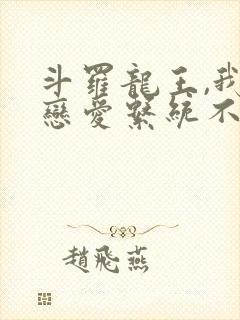 斗羅龍王,我
戀愛繫統不
趙飛燕